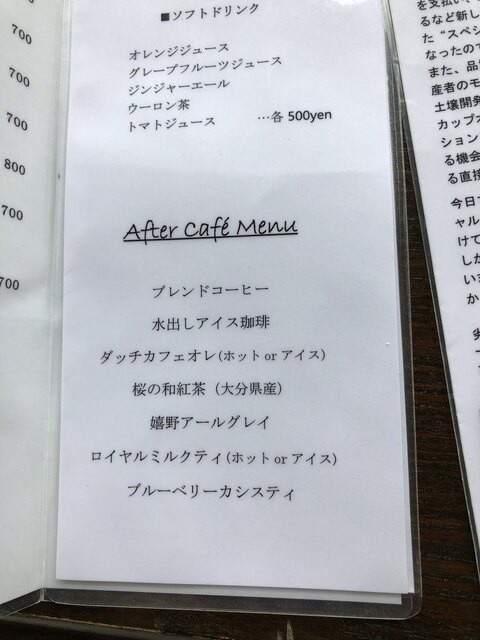 700
700
700
800
700
700
■ソフトドリンク
オレンジジュース
グレープフルーツジュース
ジンジャーエール
ウーロン茶
トマトジュース …各 500yen
After Café Menu
ブレンドコーヒー
水出しアイス珈琲
ダッチカフェオレ(ホット or アイス)
桜の和紅茶（大分県産）
嬉野アールグレイ
ロイヤルミルクティ(ホット or アイス)
ブルーベリーカシスティ
を支払い、
るなど新し
た“スペシ
なったので
また、品
産者のモ
土壌開発
カップオ
ション
る機会
る直接
今日
ャル
けて
しか
いま
か